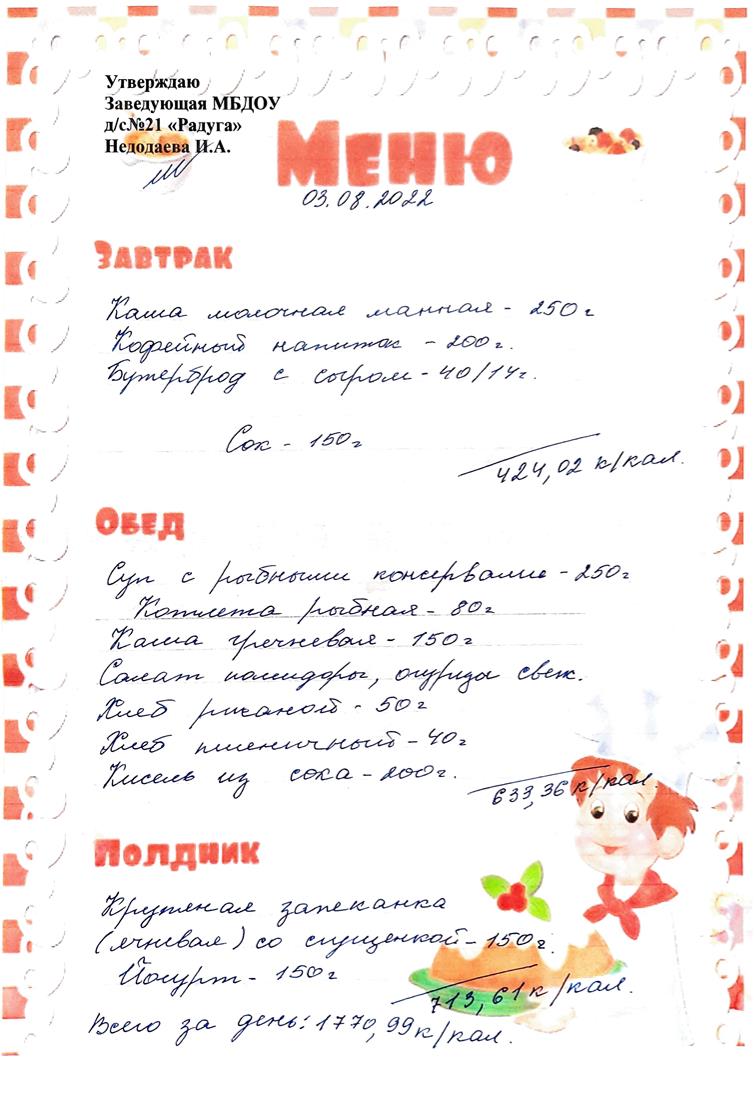 Утверждаю
Заведующая МБДОУ
д/с№21 «Радуга»
Недодаева И.А.
Меню
03.08.2022
Завтрак
Каша молочная манная - 250г
Кофейный напиток - 200г.
Бутерброд с сыром - 40/14г.
Сок - 150г
424,02 к/кал.
Обед
Суп с рыбными консервами - 250г
Котлета рыбная - 80г
Каша гречневая - 150г
Салат помидоры, огурцы свеж.
Хлеб ржаной - 50г
Хлеб пшеничный - 40г
Кисель из сока - 200г.
633,36 к/кал.
Полдник
Крупяная запеканка
(ячневая) со сгущенкой - 150г.
Йогурт - 150г
713,61 к/кал.
Всего за день: 1770,99 к/кал.